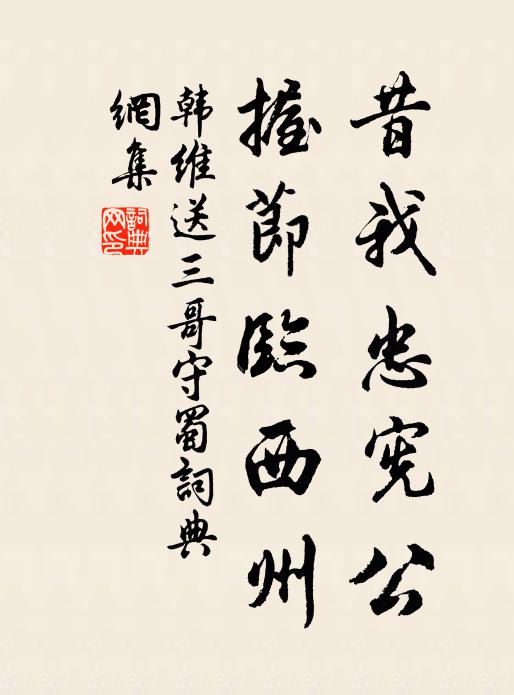 昔我忠宪公
握節臨西州
韩維送三哥守蜀詞典
網集
詞典
网印